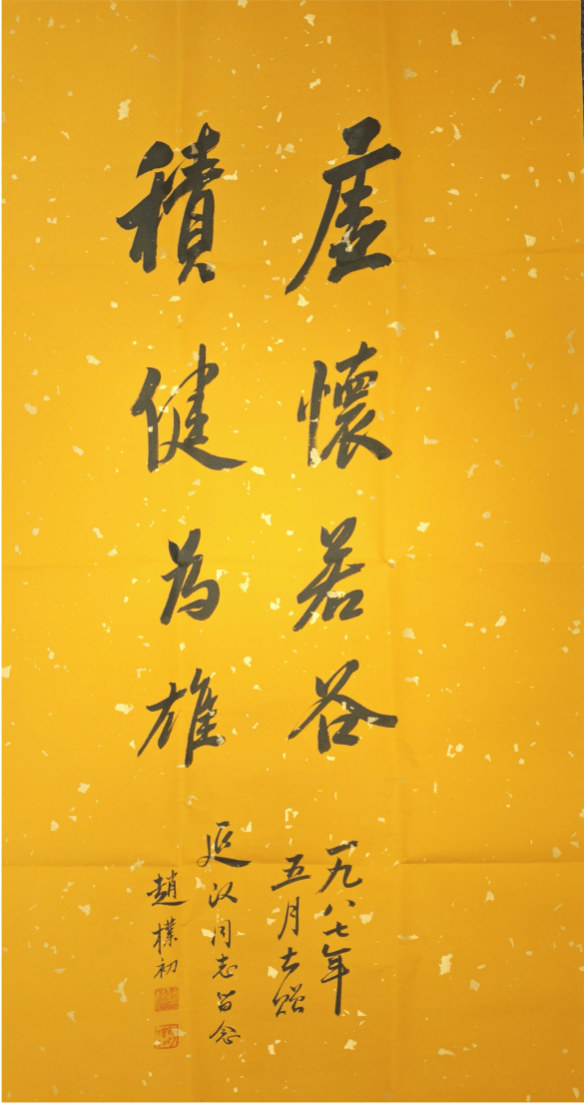 虚懷若谷
積健為雄
一九八七年
五月书赠
延汉同志留念
趙樸初